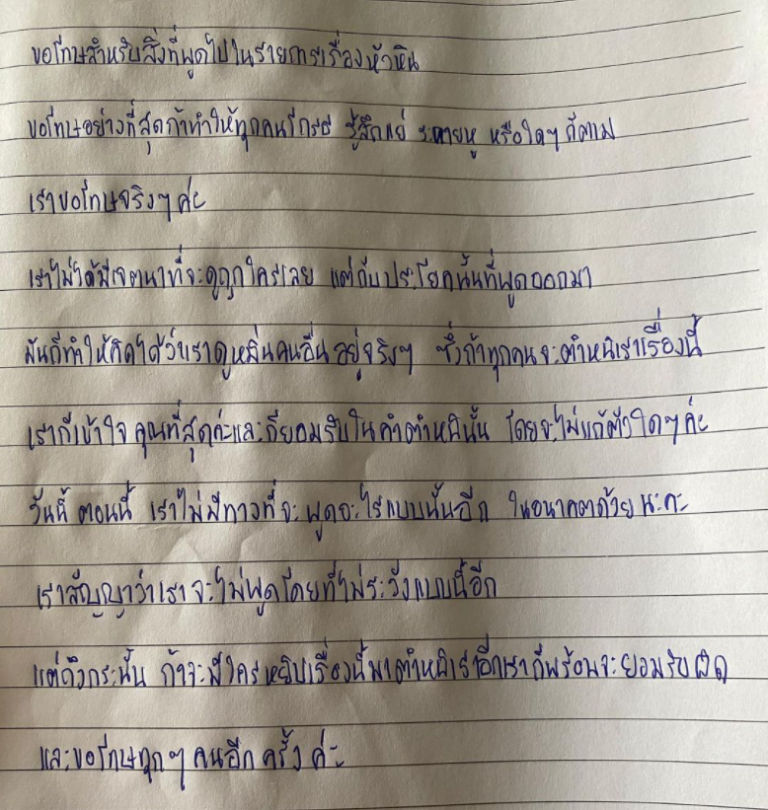 ขอโทษสำหรับสิ่งที่พูดไปในรายการเรื่องหัวหิน
ขอโทษอย่างที่สุดถ้าทำให้ทุกคนโกรธ รู้สึกแย่ ระคายหู หรือใดๆ ก็ตาม
เราขอโทษจริงๆ ค่ะ
เราไม่ได้มีเจตนาที่จะดูถูกใครเลย แต่กับประโยคนั้นที่พูดออกมา
มันก็ทำให้คิดได้ว่าเราดูหมิ่นคนอื่นอยู่จริงๆ ซึ่งถ้าทุกคนจะตำหนิเราเรื่องนี้
เราก็เข้าใจ คุณที่สุดค่ะและก็ยอมรับในคำตำหนินั้น โดยจะไม่แก้ตัวใดๆ ค่ะ
วันนี้ ตอนนี้ เราไม่มีทางที่จะ พูดอะไรแบบนั้นอีก ในอนาคตด้วย นะคะ
เราสัญญาว่าเราจะไม่พูดโดยที่ไม่ระวังแบบนี้อีก
แต่ถึงกระนั้น ถ้าจะมีใครหยิบเรื่องนี้มาตำหนิเราอีกเราก็พร้อมจะยอมรับผิด
และขอโทษทุกๆ คนอีกครั้ง ค่ะ